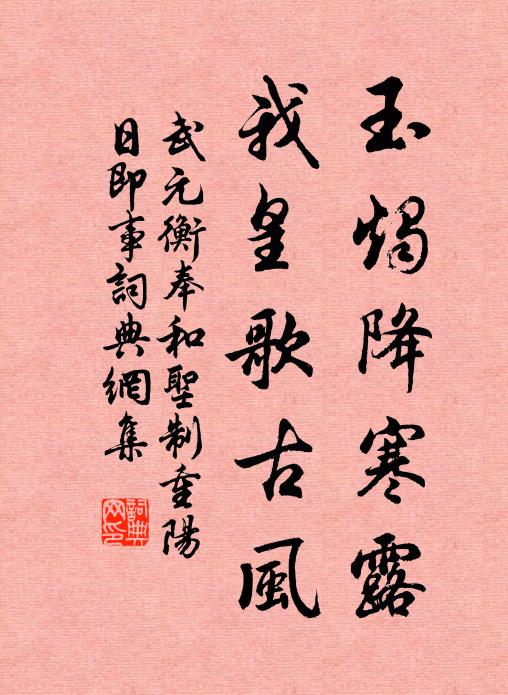 玉燭降寒露
我皇歌古風
武元衡奉和聖制重陽
日即事詞典網集
詞典網印